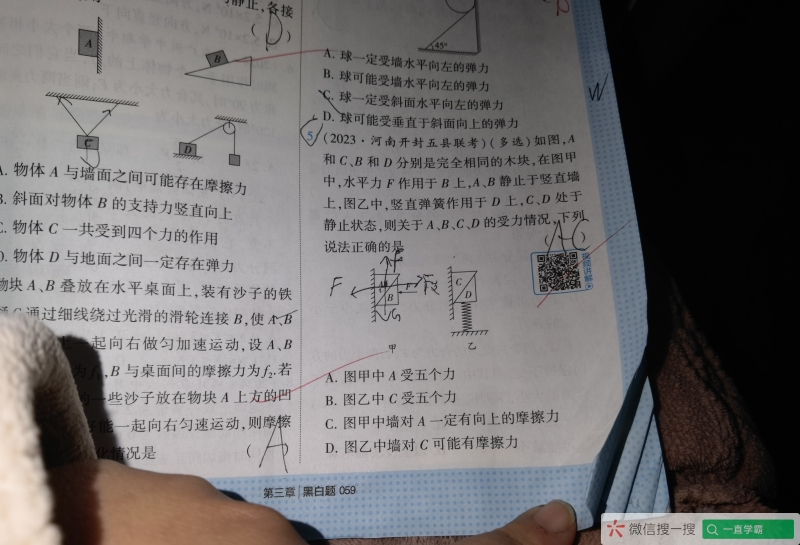 静止,各接
(D)
A
B
C
D
A. 物体 A 与墙面之间可能存在摩擦力
B. 斜面对物体 B 的支持力竖直向上
C. 物体 C 一共受到四个力的作用
D. 物体 D 与地面之间一定存在弹力
物块 A、B 叠放在水平桌面上,装有沙子的铁
通过细线绕过光滑的滑轮连接 B,使 A、B
一起向右做匀加速运动,设 A、B
为 f₁,B 与桌面间的摩擦力为 f₂.若
一些沙子放在物块 A 上方的凹
能一起向右匀速运动,则摩擦
情况是
(A)
45°
A. 球一定受墙水平向左的弹力
B. 球可能受墙水平向左的弹力
C. 球一定受斜面水平向左的弹力
D. 球可能受垂直于斜面向上的弹力
5
(2023·河南开封五县联考)(多选)如图,A
和 C、B 和 D 分别是完全相同的木块,在图甲
中,水平力 F 作用于 B 上,A、B 静止于竖直墙
上,图乙中,竖直弹簧作用于 D 上,C、D 处于
静止状态,则关于 A、B、C、D 的受力情况,下列
说法正确的是
(AC)
F
B
G
C
D
甲
乙
A. 图甲中 A 受五个力
B. 图乙中 C 受五个力
C. 图甲中墙对 A 一定有向上的摩擦力
D. 图乙中墙对 C 可能有摩擦力
第三章 黑白题 059
微信搜一搜
一直学霸